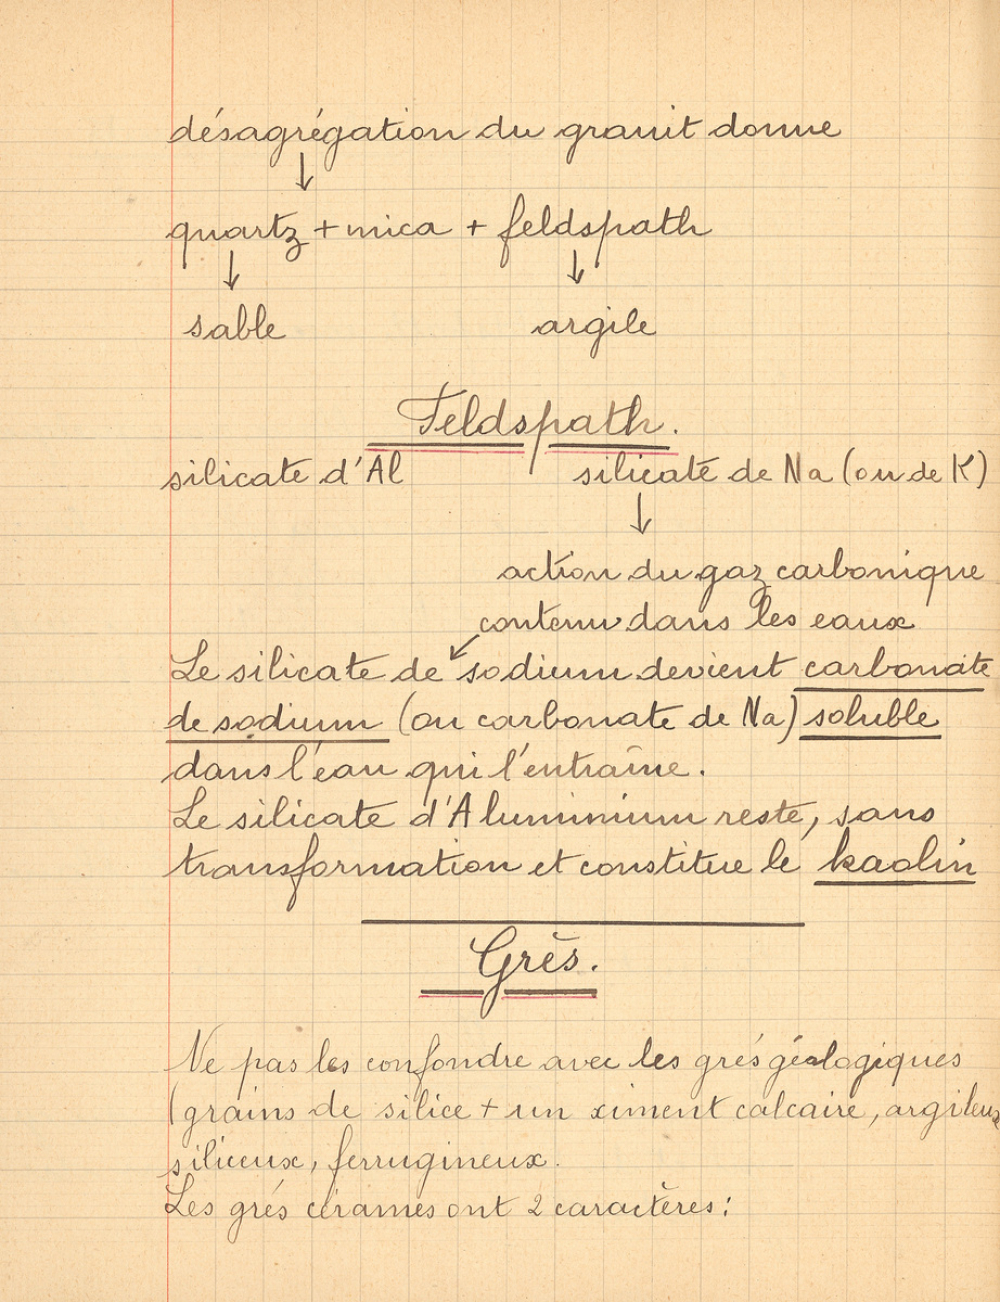 désagrégation du granit donne
↓
quartz + mica + feldspath
↓ ↓
sable argile
Feldspath.
silicate d'Al silicate de Na (ou de K)
↓
action du gaz carbonique
contenu dans les eaux
Le silicate de sodium devient carbonate
de sodium (ou carbonate de Na) soluble
dans l'eau qui l'entraîne.
Le silicate d'Aluminium reste, sans
transformation et constitue le kaolin
Grès.
Ne pas les confondre avec les grés géologiques
(grains de silice + un ciment calcaire, argileux
siliceux, ferrugineux.
Les grés cérames ont 2 caractères :